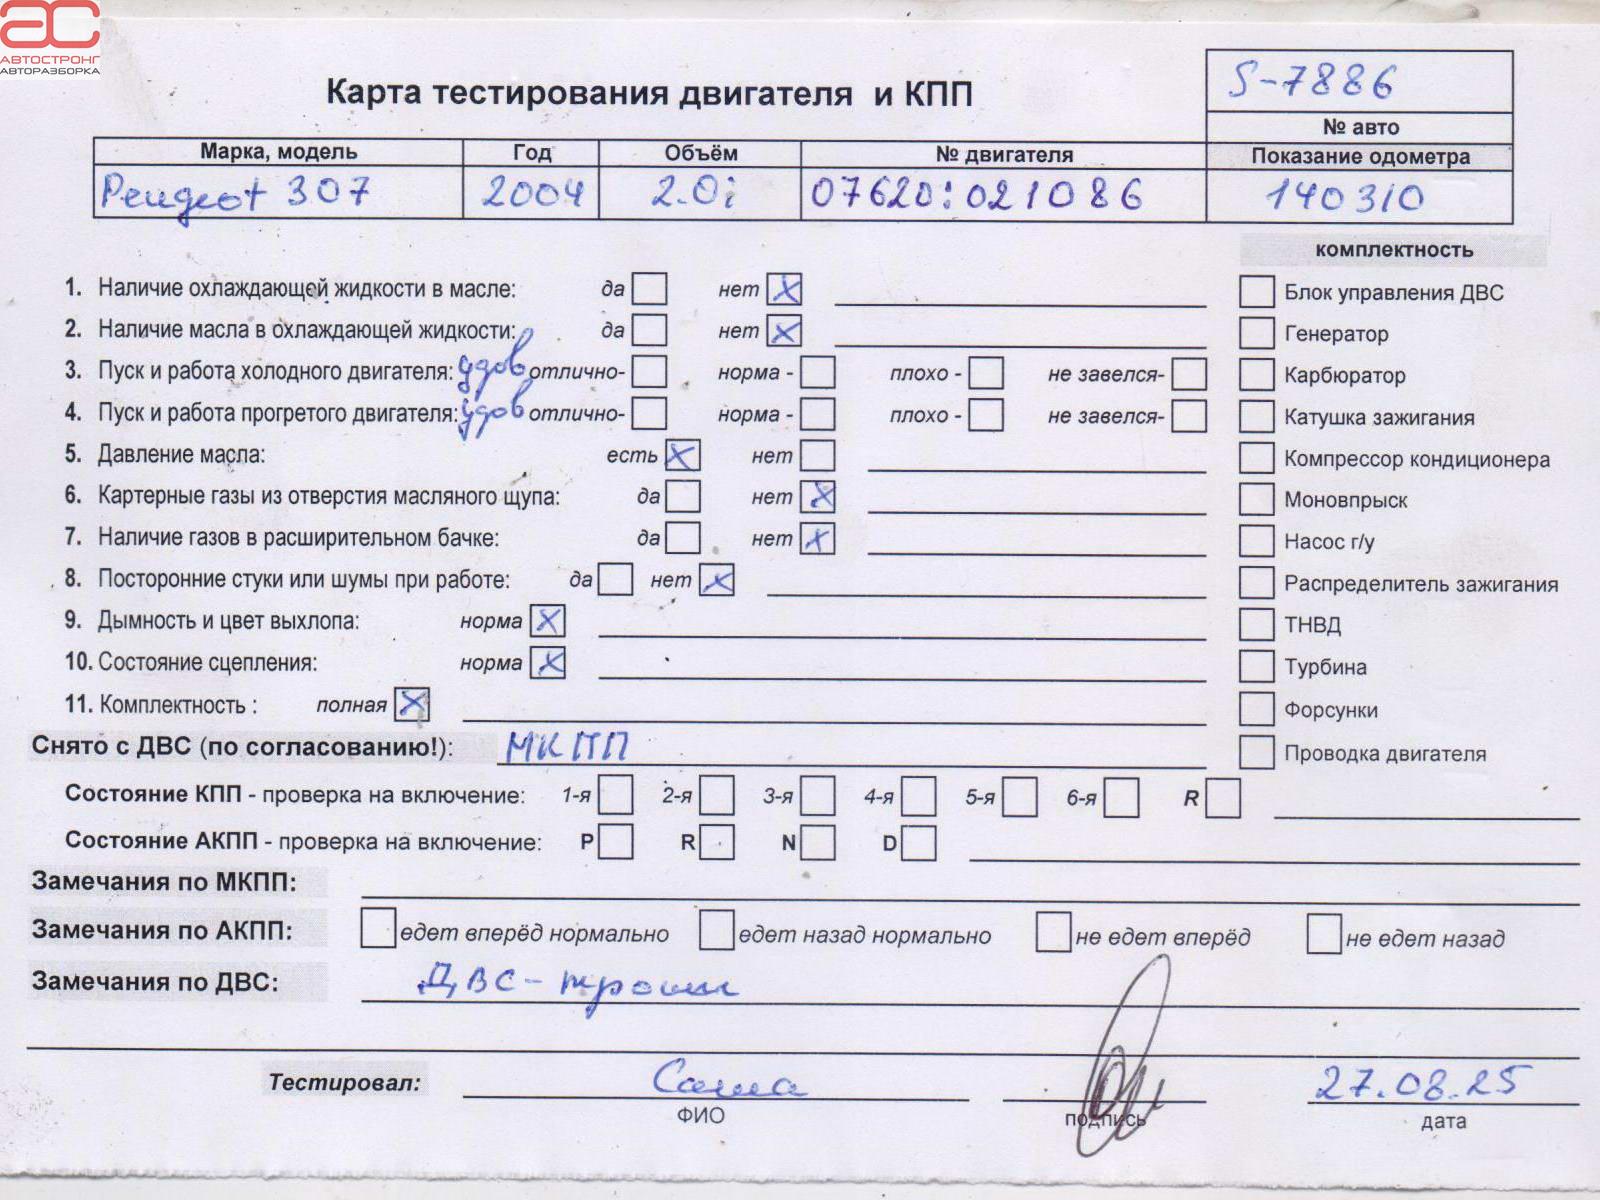 АС
АВТОСТРОНГ
АВТОРАЗБОРКА
S-7886
Карта тестирования двигателя и КПП
№ авто
Марка, модель Год Объём № двигателя Показание одометра
Peugeot 307 2004 2.0i 07620:021086 140310
комплектность
1. Наличие охлаждающей жидкости в масле: да нет X Блок управления ДВС
2. Наличие масла в охлаждающей жидкости: да нет X Генератор
3. Пуск и работа холодного двигателя: удов отлично- норма - плохо - не завелся- Карбюратор
4. Пуск и работа прогретого двигателя: удов отлично- норма - плохо - не завелся- Катушка зажигания
5. Давление масла: есть X нет Компрессор кондиционера
6. Картерные газы из отверстия масляного щупа: да нет X Моновпрыск
7. Наличие газов в расширительном бачке: да нет X Насос г/у
8. Посторонние стуки или шумы при работе: да нет X Распределитель зажигания
9. Дымность и цвет выхлопа: норма X ТНВД
10. Состояние сцепления: норма X Турбина
11. Комплектность : полная X Форсунки
Снято с ДВС (по согласованию!): МКПП Проводка двигателя
Состояние КПП - проверка на включение: 1-я 2-я 3-я 4-я 5-я 6-я R
Состояние АКПП - проверка на включение: P R N D
Замечания по МКПП:
Замечания по АКПП: едет вперёд нормально едет назад нормально не едет вперёд не едет назад
Замечания по ДВС: ДВС-
Тестировал: Саша 27.08.25
ФИО подпись дата